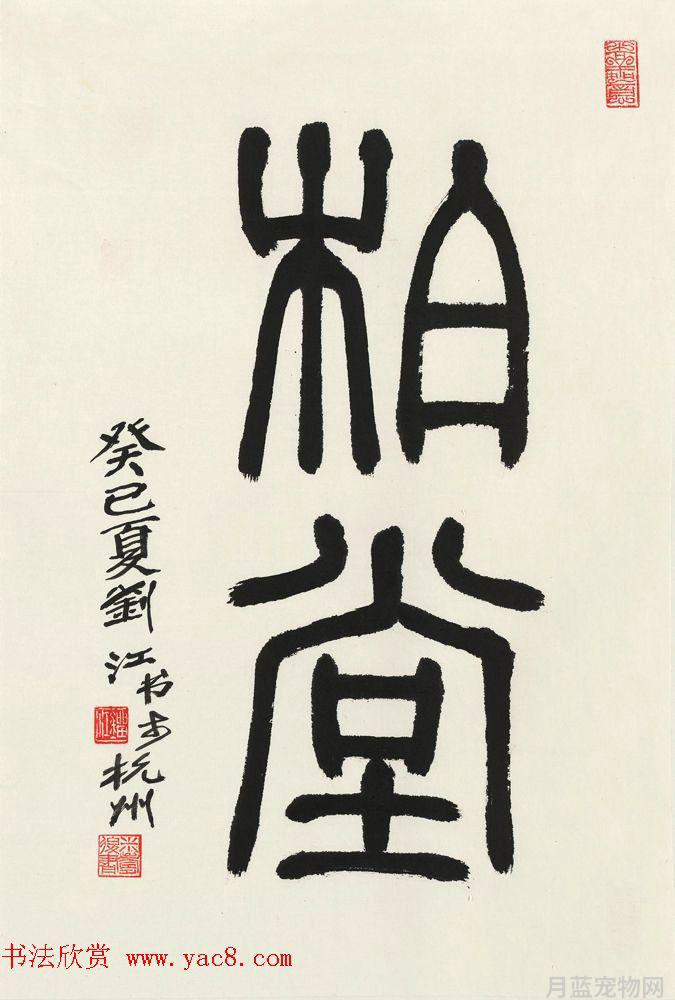 柏堂
癸巳夏劉江书于杭州
书法欣赏 www.yac8.com
月蓝宠物网